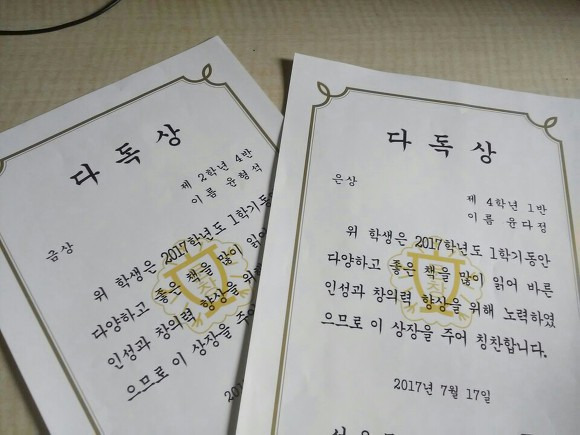 다독상
제 2학년 4반
이름 윤형석
금상
위 학생은 2017학년도 1학기동안
다양하고 좋은 책을 많이 읽어
인성과 창의력 향상을 위해
으므로 이 상장을 주어
2017
다독상
은상
제 4학년 1반
이름 윤다정
위 학생은 2017학년도 1학기동안
다양하고 좋은 책을 많이 읽어 바른
인성과 창의력 향상을 위해 노력하였
으므로 이 상장을 주어 칭찬합니다.
2017년 7월 17일